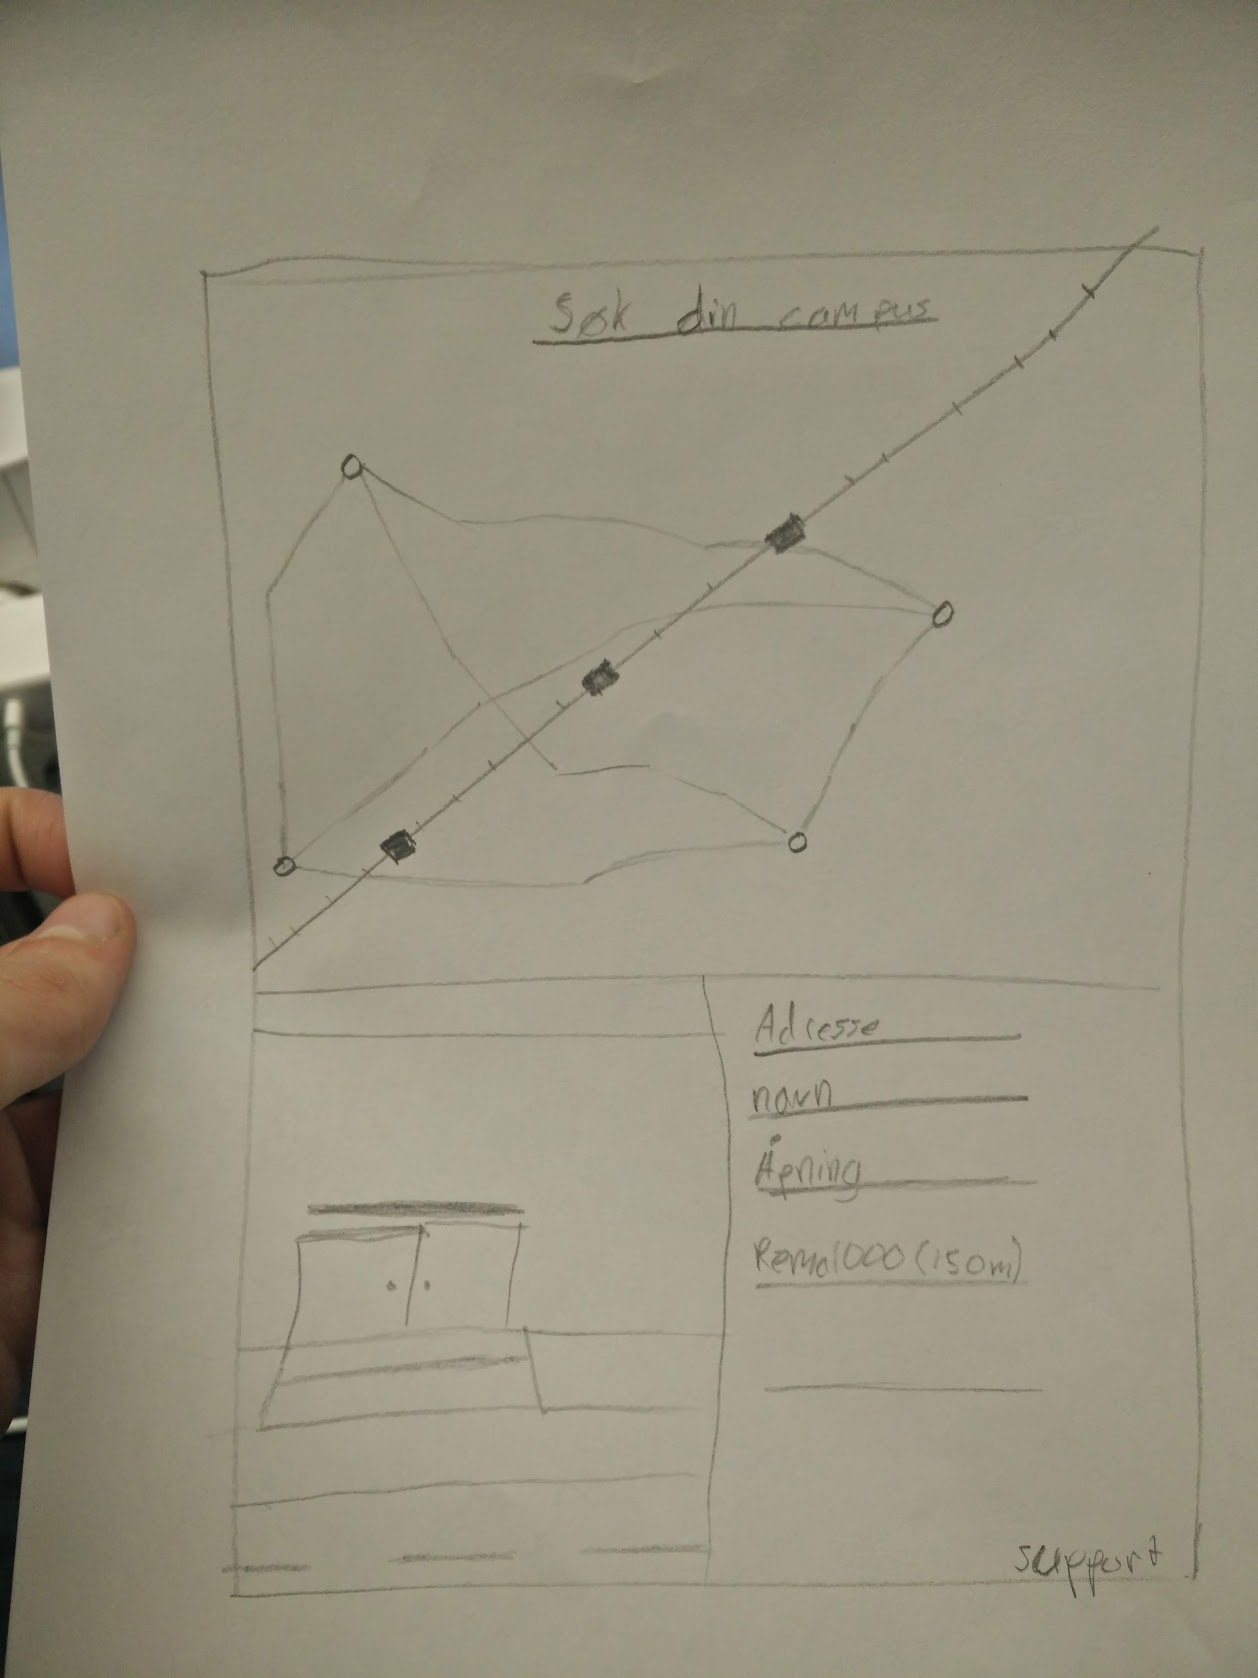 Søk din campus
Adresse
navn
Åpning
Rema1000 (150m)
support